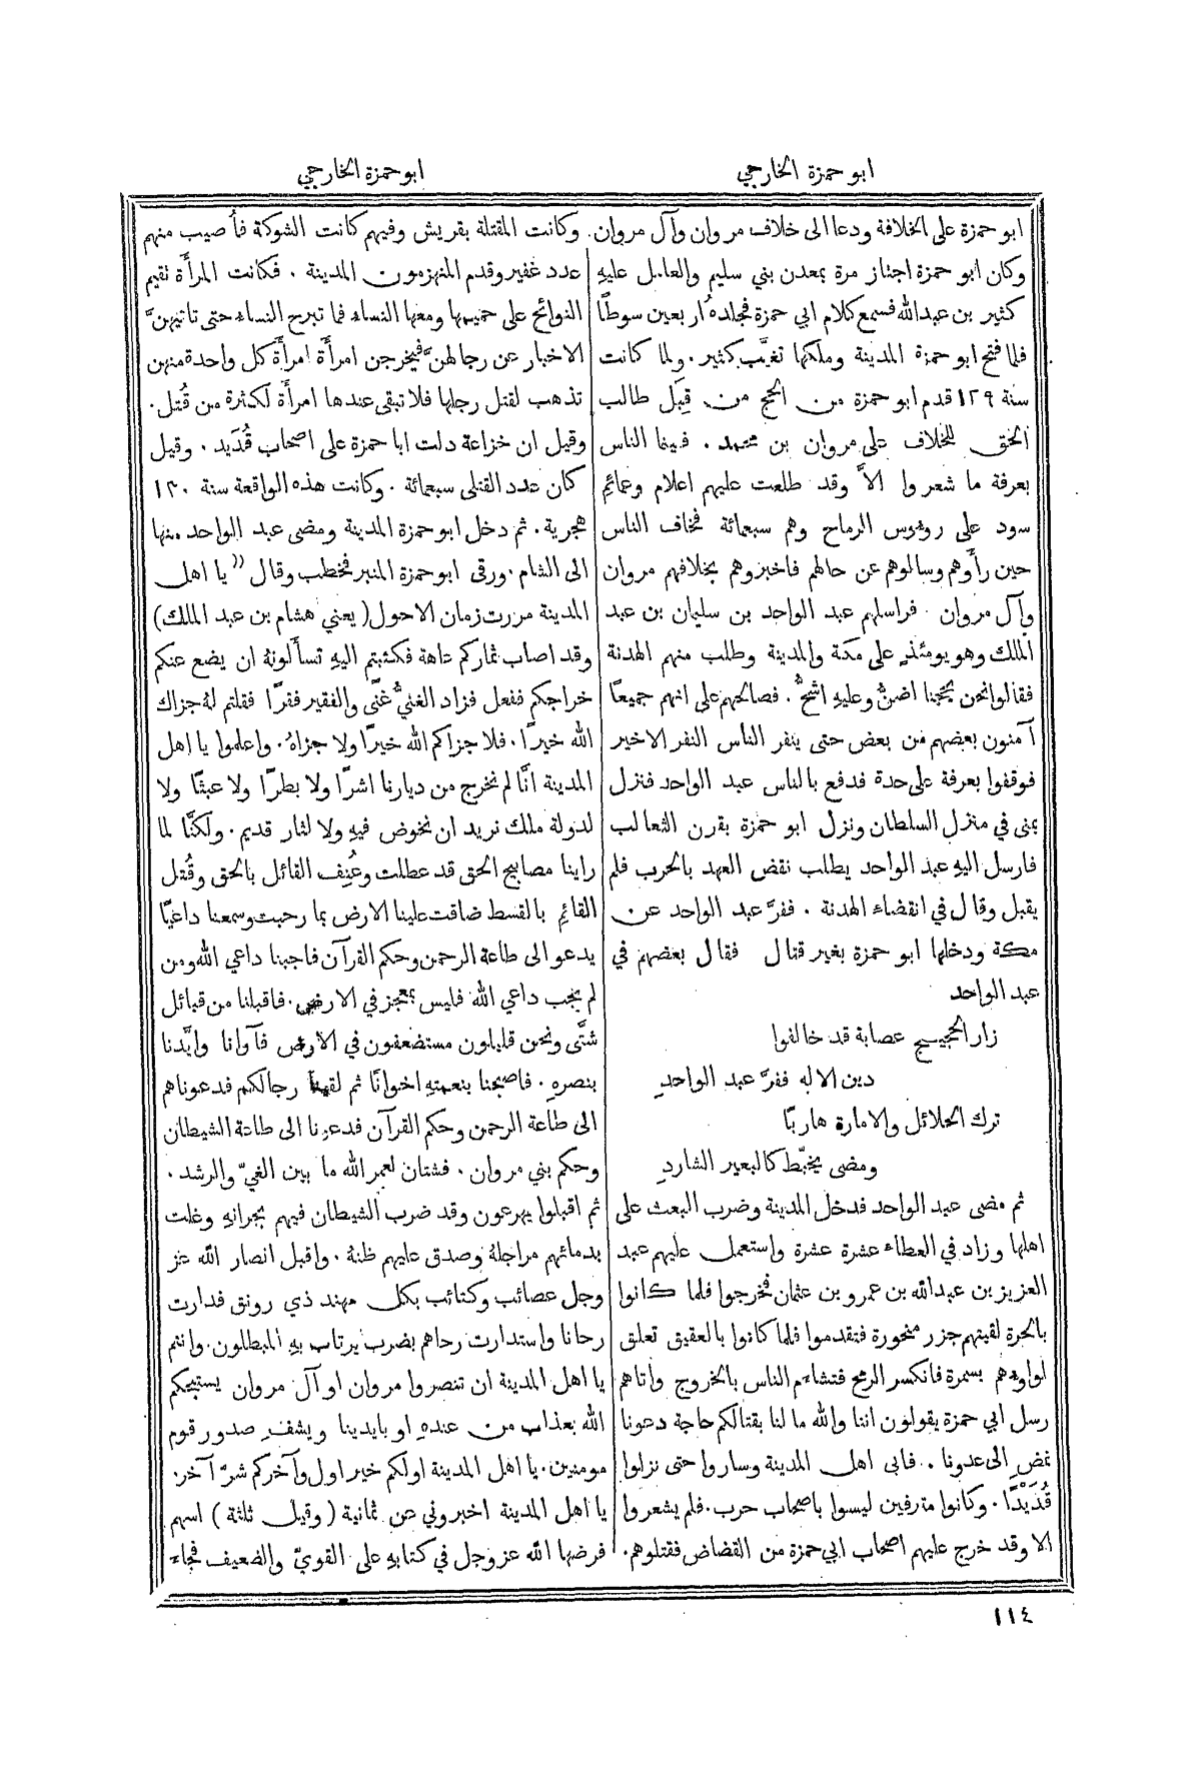 ابو حمزة الخارجي
ابو حمزة الخارجي
ابو حمزة على الخلافة ودعا الى خلاف مروان وآل مروان.
وكان ابو حمزة اجتاز مرة بمعدن بني سليم والعامل عليهِ
كثير بن عبد الله فسمع كلام ابي حمزة فجلدهُ اربعين سوطًا
فلما فتح ابو حمزة المدينة وملكها تغيَّب كثير. ولما كانت
سنة ١٢٩ قدم ابو حمزة من الحج من قِبَل طالب
الحق للخلاف على مروان بن محمد. فبينما الناس
بعرفة ما شعروا الاَّ وقد طلعت عليهم اعلام وعمائم
سود على روؤس الرماح وهم سبعمائة فخاف الناس
حين رأوهم وسالوهم عن حالهم فاخبروهم بخلافهم مروان
وآل مروان. فراسلهم عبد الواحد بن سليمان بن عبد
الملك وهو يومئذٍ على مكة والمدينة وطلب منهم الهدنة
فقالوا نحن بحجنا اضنُّ وعليهِ اشحُّ. فصالحهم على انهم جميعًا
آمنون بعضهم من بعض حتى ينفر الناس النفر الاخير
فوقفوا بعرفة على حدة فدفع بالناس عبد الواحد فنزل
بمنى في منزل السلطان ونزل ابو حمزة بقرن الثعالب
فارسل اليهِ عبد الواحد يطلب نقض العهد بالحرب فلم
يقبل وقال في انقضاء الهدنة. ففرَّ عبد الواحد عن
مكة ودخلها ابو حمزة بغير قتال فقال بعضهم في
عبد الواحد
زار الحجيج عصابة قد خالفوا
دين الاله ففرَّ عبد الواحدِ
ترك الحلائل والامارة هاربًا
ومضى يخبّط كالبعير الشاردِ
ثم مضى عبد الواحد فدخل المدينة وضرب البعث على
اهلها وزاد في العطاء عشرة عشرة واستعمل عليهم عبد
العزيز بن عبد الله بن عمرو بن عثمان فخرجوا فلما كانوا
بالحرة لقيتهم جزر منحورة فتقدموا فلما كانوا بالعقيق تعلق
لواوءهم بسمرة فانكسر الرمح فتشاءم الناس بالخروج واتاهم
رسل ابي حمزة يقولون اننا والله ما لنا بقتالكم حاجة دعونا
نمضِ الى عدونا. فابى اهل المدينة وساروا حتى نزلوا
قُدَيْدًا. وكانوا مترفين ليسوا باصحاب حرب. فلم يشعروا
الا وقد خرج عليهم اصحاب ابي حمزة من القضاض فقتلوهم.
وكانت المقتلة بقريش وفيهم كانت الشوكة فأُصيب منهم
عدد غفير وقدم المنهزمون المدينة. فكانت المرأة تقيم
النوائح على حميمها ومعها النساء فما تبرح النساء حتى تاتيهنَّ
الاخبار عن رجالهنَّ فيخرجن امرأة امرأة كل واحدة منهن
تذهب لقتل رجلها فلا تبقى عندها امرأة لكثرة من قُتل.
وقيل ان خزاعة دلت ابا حمزة على اصحاب قُدَيد. وقيل
كان عدد القتلى سبعمائة. وكانت هذه الواقعة سنة ١٣٠
هجرية. ثم دخل ابو حمزة المدينة ومضى عبد الواحد منها
الى الشام. ورقى ابو حمزة المنبر فخطب وقال ”يا اهل
المدينة مررت زمان الاحول (يعني هشام بن عبد الملك)
وقد اصاب ثماركم عاهة فكتبتم اليهِ تسألونهُ ان يضع عنكم
خراجكم ففعل فزاد الغنيُّ غنًى والفقير فقرًا فقلتم لهُ جزاك
الله خيرًا. فلا جزاكم الله خيرًا ولا جزاهُ. واعلموا يا اهل
المدينة انَّا لم نخرج من ديارنا اشرًا ولا بطرًا ولا عبثًا ولا
لدولة ملك نريد ان نخوض فيهِ ولا لثار قديم. ولكنَّا لما
راينا مصابيح الحق قد عطلت وعُنِف القائل بالحق وقُتل
القائم بالقسط ضاقت علينا الارض بما رحبت وسمعنا داعيًا
يدعو الى طاعة الرحمن وحكم القرآن فاجبنا داعي الله ومن
لم يجب داعي الله فليس بمعجز في الارض. فاقبلنا من قبائل
شتَّى ونحن قليلون مستضعفون في الارض فآوانا وايَّدنا
بنصرهِ. فاصبحنا بنعمتهِ اخوانًا ثم لقينا رجالكم فدعوناهم
الى طاعة الرحمن وحكم القرآن فدعونا الى طاعة الشيطان
وحكم بني مروان. فشتان لعمر الله ما بين الغيّ والرشد.
ثم اقبلوا يهرعون وقد ضرب الشيطان فيهم بجرانهِ وغلت
بدمائهم مراجلهُ وصدق عليهم ظنهُ. واقبل انصار الله عز
وجل عصائب وكتائب بكل مهند ذي رونق فدارت
رحانا واستدارت رحاهم بضرب يرتاب بهِ المبطلون. وانتم
يا اهل المدينة ان تنصروا مروان او آل مروان يستبحكم
الله بعذاب من عندهِ او بايدينا ويشفِ صدور قوم
مومنين. يا اهل المدينة اولكم خير اول وآخركم شرّ آخر.
يا اهل المدينة اخبروني عن ثمانية (وقيل ثلثة) اسهم
فرضها الله عز وجل في كتابهِ على القويّ والضعيف فجاء
١١٤